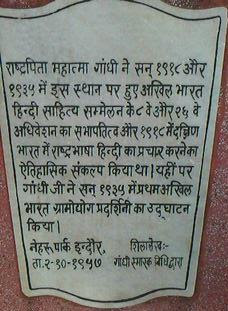 राष्ट्रपिता महात्मा गांधी ने सन् १९१८ और
१९३५ में इस स्थान पर हुए अखिल भारत
हिन्दी साहित्य सम्मेलन के ८ वे और २६ वे
अधिवेशन का सभापतित्व और १९१८ में दक्षिण
भारत में राष्ट्रभाषा हिन्दी का प्रचार करने का
ऐतिहासिक संकल्प किया था। यहीं पर
गांधी जी ने सन् १९३५ में प्रथम अखिल
भारत ग्रामीयोग प्रदर्शिनी का उद्घाटन
किया।
नेहरू पार्क इन्दौर, शिलालेख:-
ता. २-१०-१९५७ गांधी स्मारक निधि द्वारा